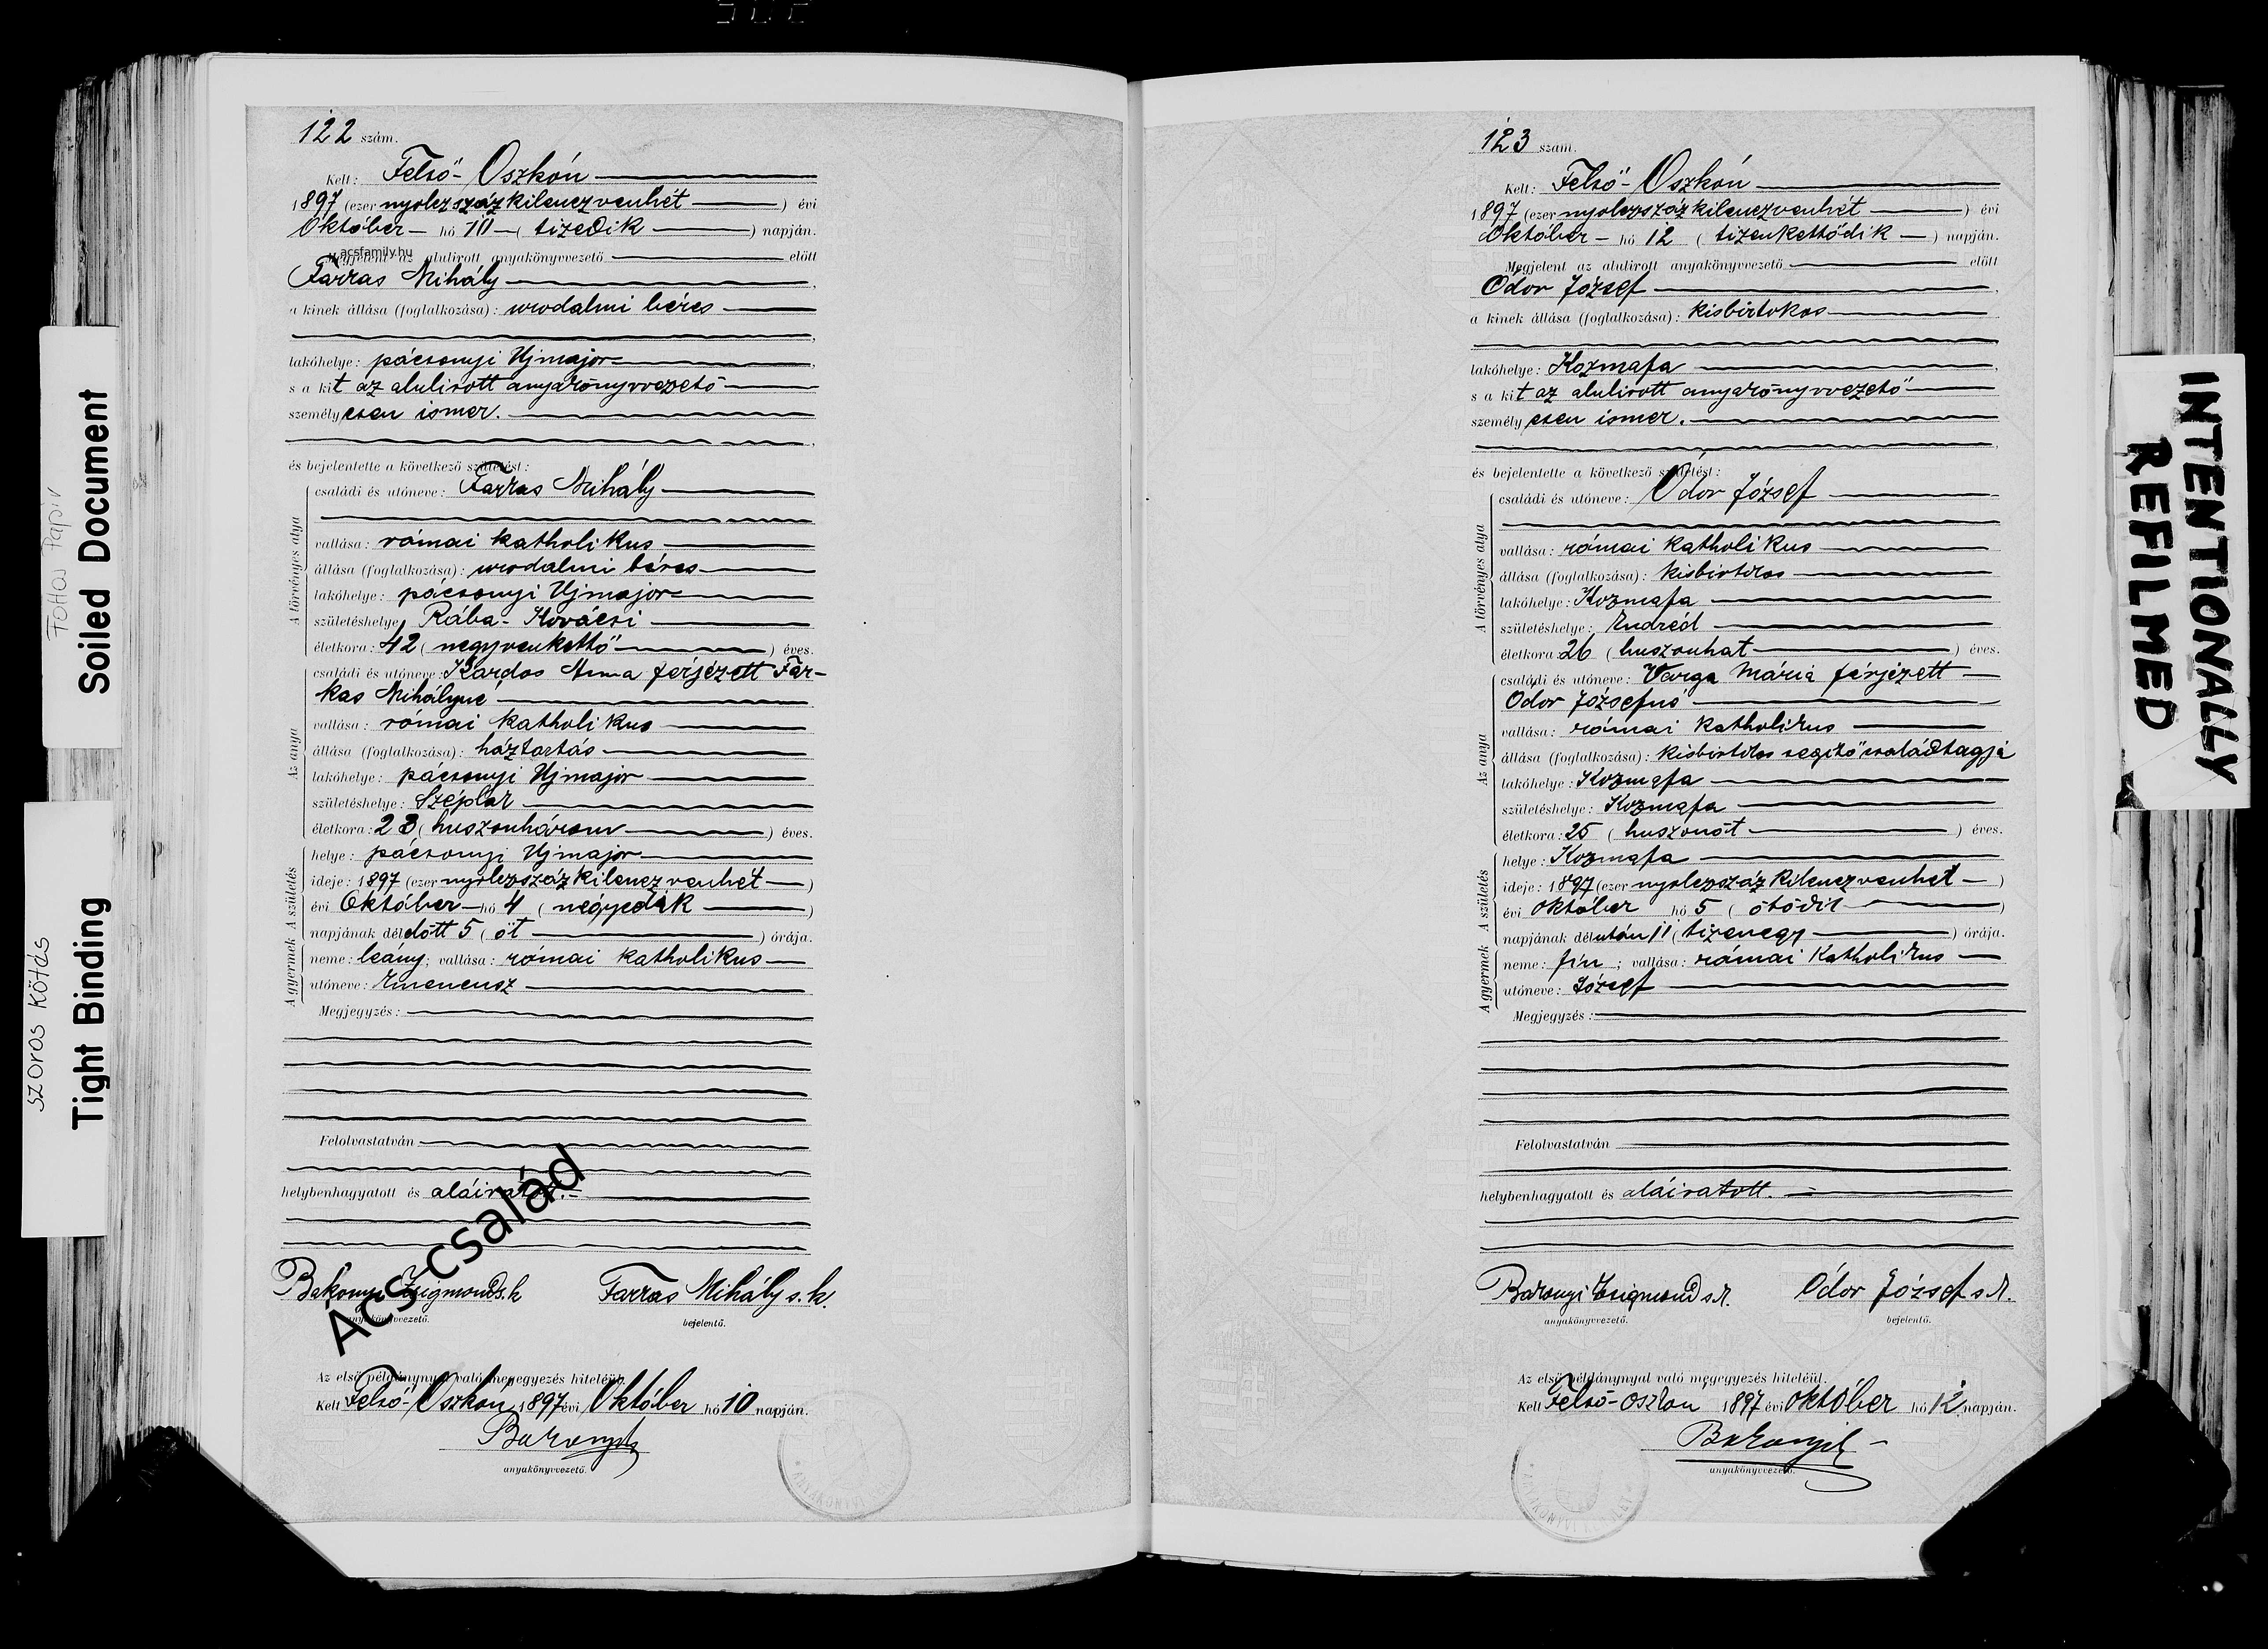 122 szám.
Kelt: Felső-Oszkón
1897 (ezer nyolczszázkilenczvenhét) évi
Október hó 10 (tizedik) napján.
acsfamily.hu
Megjelent az alulirott anyakönyvvezető előtt
Farkas Mihály,
a kinek állása (foglalkozása): urodalmi béres
lakóhelye: pácsonyi Ujmajor,
s a kit az alulirott anyakönyvvezető
személyesen ismer.
és bejelentette a következő születést:
A törvényes atya
családi és utóneve: Farkas Mihály
vallása: római katholikus
állása (foglalkozása): urodalmi béres
lakóhelye: pácsonyi Ujmajor
születéshelye: Rába-Kovácsi
életkora: 42 (negyvenkettő) éves.
Az anya
családi és utóneve: Kardos Anna férjezett Far-
kas Mihályné
vallása: római katholikus
állása (foglalkozása): háztartás
lakóhelye: pácsonyi Ujmajor
születéshelye: Széplak
életkora: 23 (huszonhárom) éves.
A születés
helye: pácsonyi Ujmajor
ideje: 1897 (ezer nyolczszázkilenczvenhét)
évi Október hó 4 (negyedik)
napjának délelőtt 5 (öt) órája.
A gyermek
neme: leány; vallása: római katholikus
utóneve: Emerencz
Megjegyzés:
Felolvastatván
helybenhagyatott és aláiratott.
Ács-család
Bakonyi Zsigmond s.k.
anyakönyvvezető.
Farkas Mihály s.k.
bejelentő.
Az első példánynyal való megegyezés hiteléül.
Kelt Felső-Oszkón, 1897 évi Október hó 10 napján.
Bakonyi
anyakönyvvezető.
123 szám.
Kelt: Felső-Oszkón
1897 (ezer nyolczszázkilenczvenhét) évi
Október hó 12 (tizenkettődik) napján.
Megjelent az alulirott anyakönyvvezető előtt
Ódor József,
a kinek állása (foglalkozása): kisbirtokos
lakóhelye: Kozmafa,
s a kit az alulirott anyakönyvvezető
személyesen ismer.
és bejelentette a következő születést:
A törvényes atya
családi és utóneve: Ódor József
vallása: római katholikus
állása (foglalkozása): kisbirtokos
lakóhelye: Kozmafa
születéshelye: Endréd
életkora: 26 (huszonhat) éves.
Az anya
családi és utóneve: Varga Mária férjezett
Ódor Józsefné
vallása: római katholikus
állása (foglalkozása): kisbirtokos segítő családtagja
lakóhelye: Kozmafa
születéshelye: Kozmafa
életkora: 25 (huszonöt) éves.
A születés
helye: Kozmafa
ideje: 1897 (ezer nyolczszázkilenczvenhét)
évi október hó 5 (ötödik)
napjának délután 11 (tizenegy) órája.
A gyermek
neme: fiu; vallása: római katholikus
utóneve: József
Megjegyzés:
Felolvastatván
helybenhagyatott és aláiratott.
Bakonyi Zsigmond s.k.
anyakönyvvezető.
Ódor József s.k.
bejelentő.
Az első példánynyal való megegyezés hiteléül.
Kelt Felső-Oszkón 1897 évi október hó 12 napján.
Bakonyi
anyakönyvvezető.
Fóttos Papir
Soiled Document
SZOROS KÖTÉS
Tight Binding
INTENTIONALLY
REFILMED